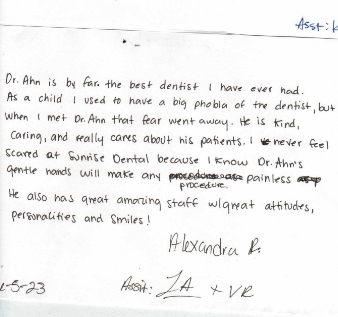 Asst:
Dr. Ahn is by far the best dentist I have ever had.
As a child I used to have a big phobia of the dentist, but
when I met Dr. Ahn that fear went away. He is kind,
caring, and really cares about his patients. I never feel
scared at Sunrise Dental because I know Dr. Ahn's
gentle hands will make any painless
procedure.
He also has great amazing staff w/great attitudes,
personalities and smiles!
Alexandra R.
-5-23
Assit: IA + VR